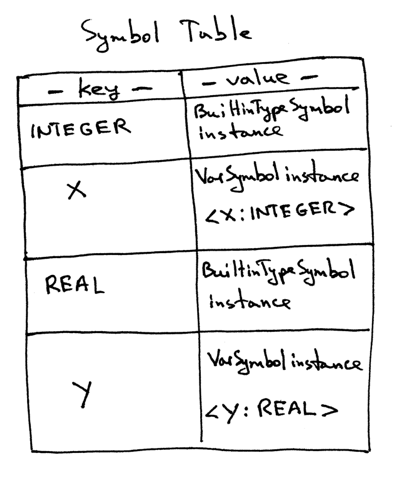 Symbol Table
- key -
- value -
INTEGER
BuiltinTypeSymbol
instance
X
VarSymbol instance
<X:INTEGER>
REAL
BuiltinTypeSymbol
instance
Y
VarSymbol instance
<Y:REAL>